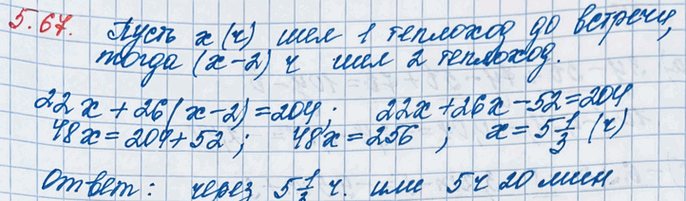 5.67. Пусть x (ч) шел 1 теплоход до встречи,
тогда (x-2) ч шел 2 теплоход.
22x + 26(x-2) = 204; 22x+26x-52=204
48x=204+52; 48x=256; x=5 1/3 (ч)
Ответ: через 5 1/3 ч. или 5ч 20 мин